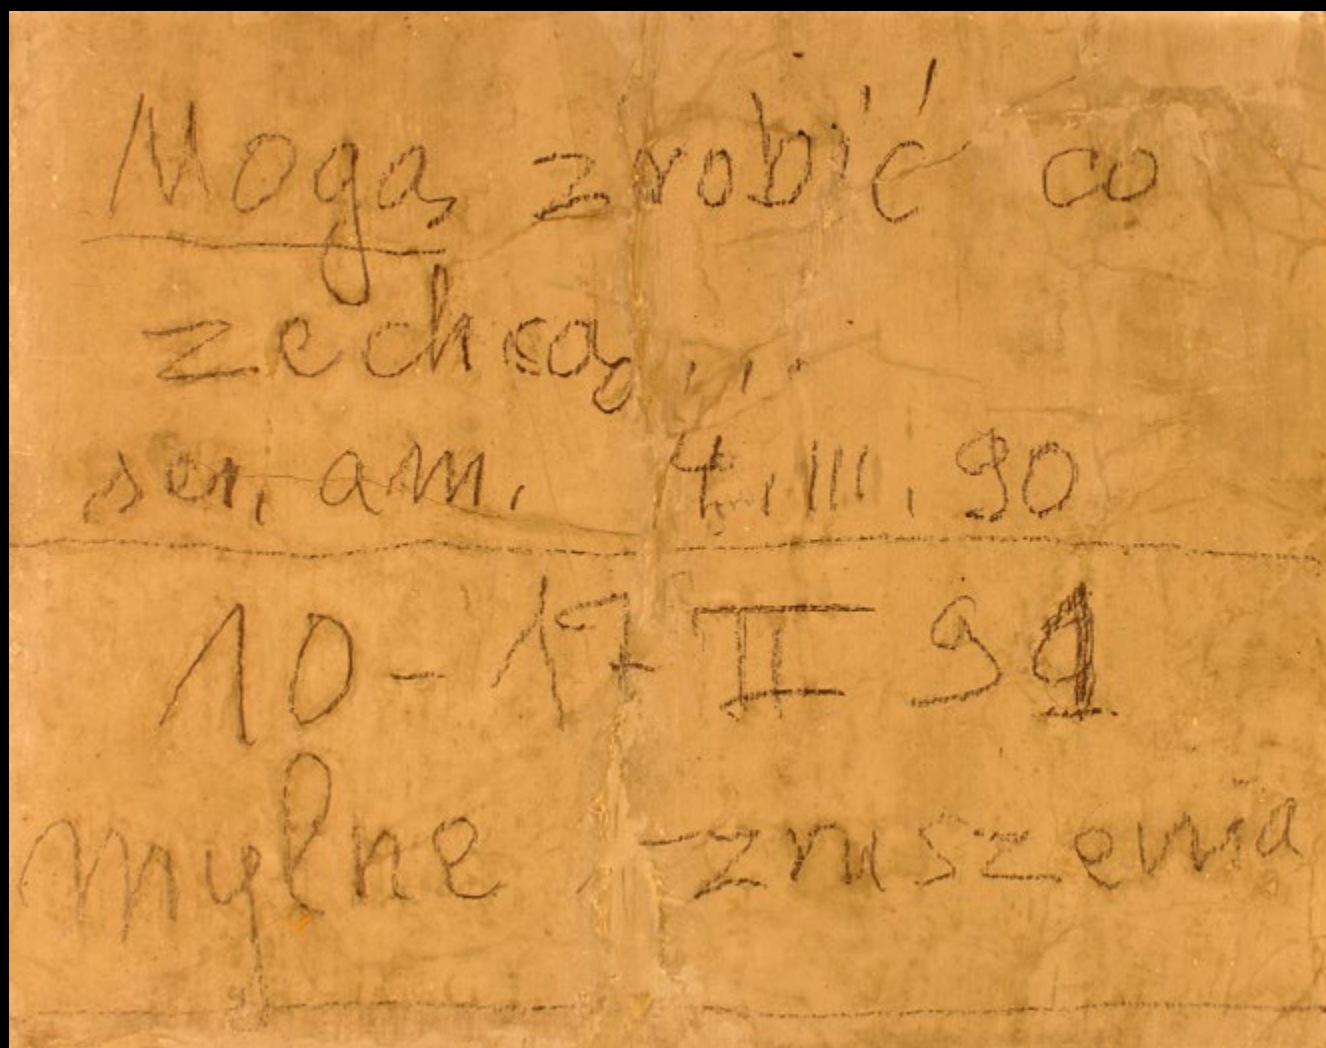 Mogą zrobić co
zechcą...
ser. am. 4. III. 90
10-17 II 91
mylne zniszczenia